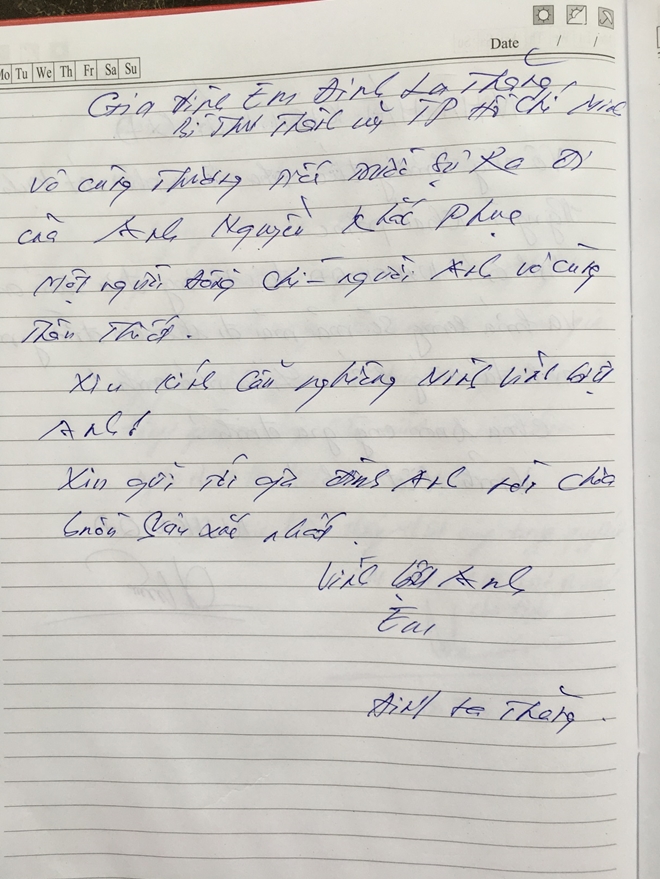 Date / /
Mo Tu We Th Fr Sa Su
Gia đình Em Đinh La Thăng,
Bí Thư Thành uỷ TP Hồ Chí Minh
vô cùng Thương tiếc trước sự Ra đi
của Anh Nguyễn Khắc Phục
Một người đồng chí - người Anh vô cùng
Thân Thiết.
Xin kính cẩn nghiêng mình vĩnh biệt
Anh!
Xin gửi tới gia đình Anh lời chia
buồn sâu sắc nhất.
Vĩnh biệt Anh
Em
Đinh La Thăng.